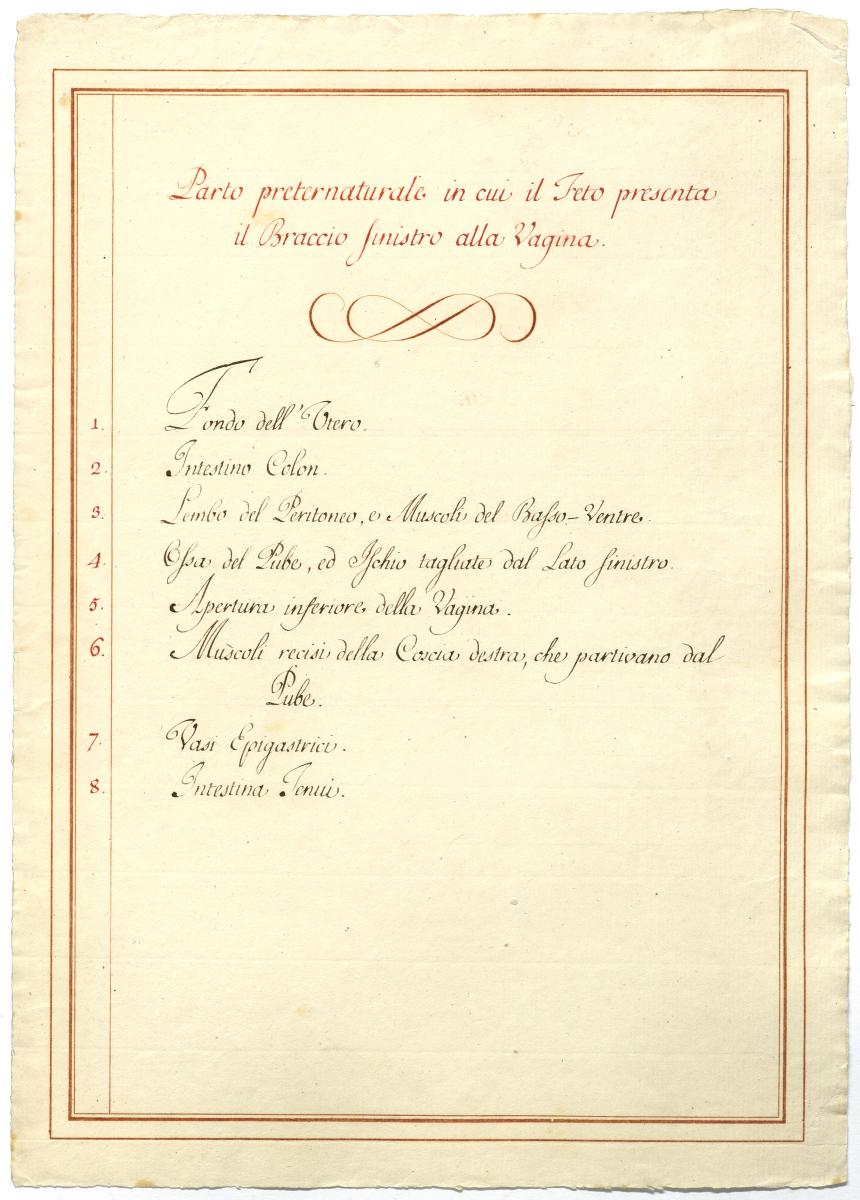 Parto preternaturale in cui il Feto presenta
il Braccio sinistro alla Vagina.
1. Fondo dell'Utero.
2. Intestino Colon.
3. Lembo del Peritoneo, e Muscoli del Basso-Ventre.
4. Ossa del Pube, ed Ischio tagliate dal Lato sinistro.
5. Apertura inferiore della Vagina.
6. Muscoli recisi della Coscia destra, che partivano dal
Pube.
7. Vasi Epigastrici.
8. Intestina Tenui.